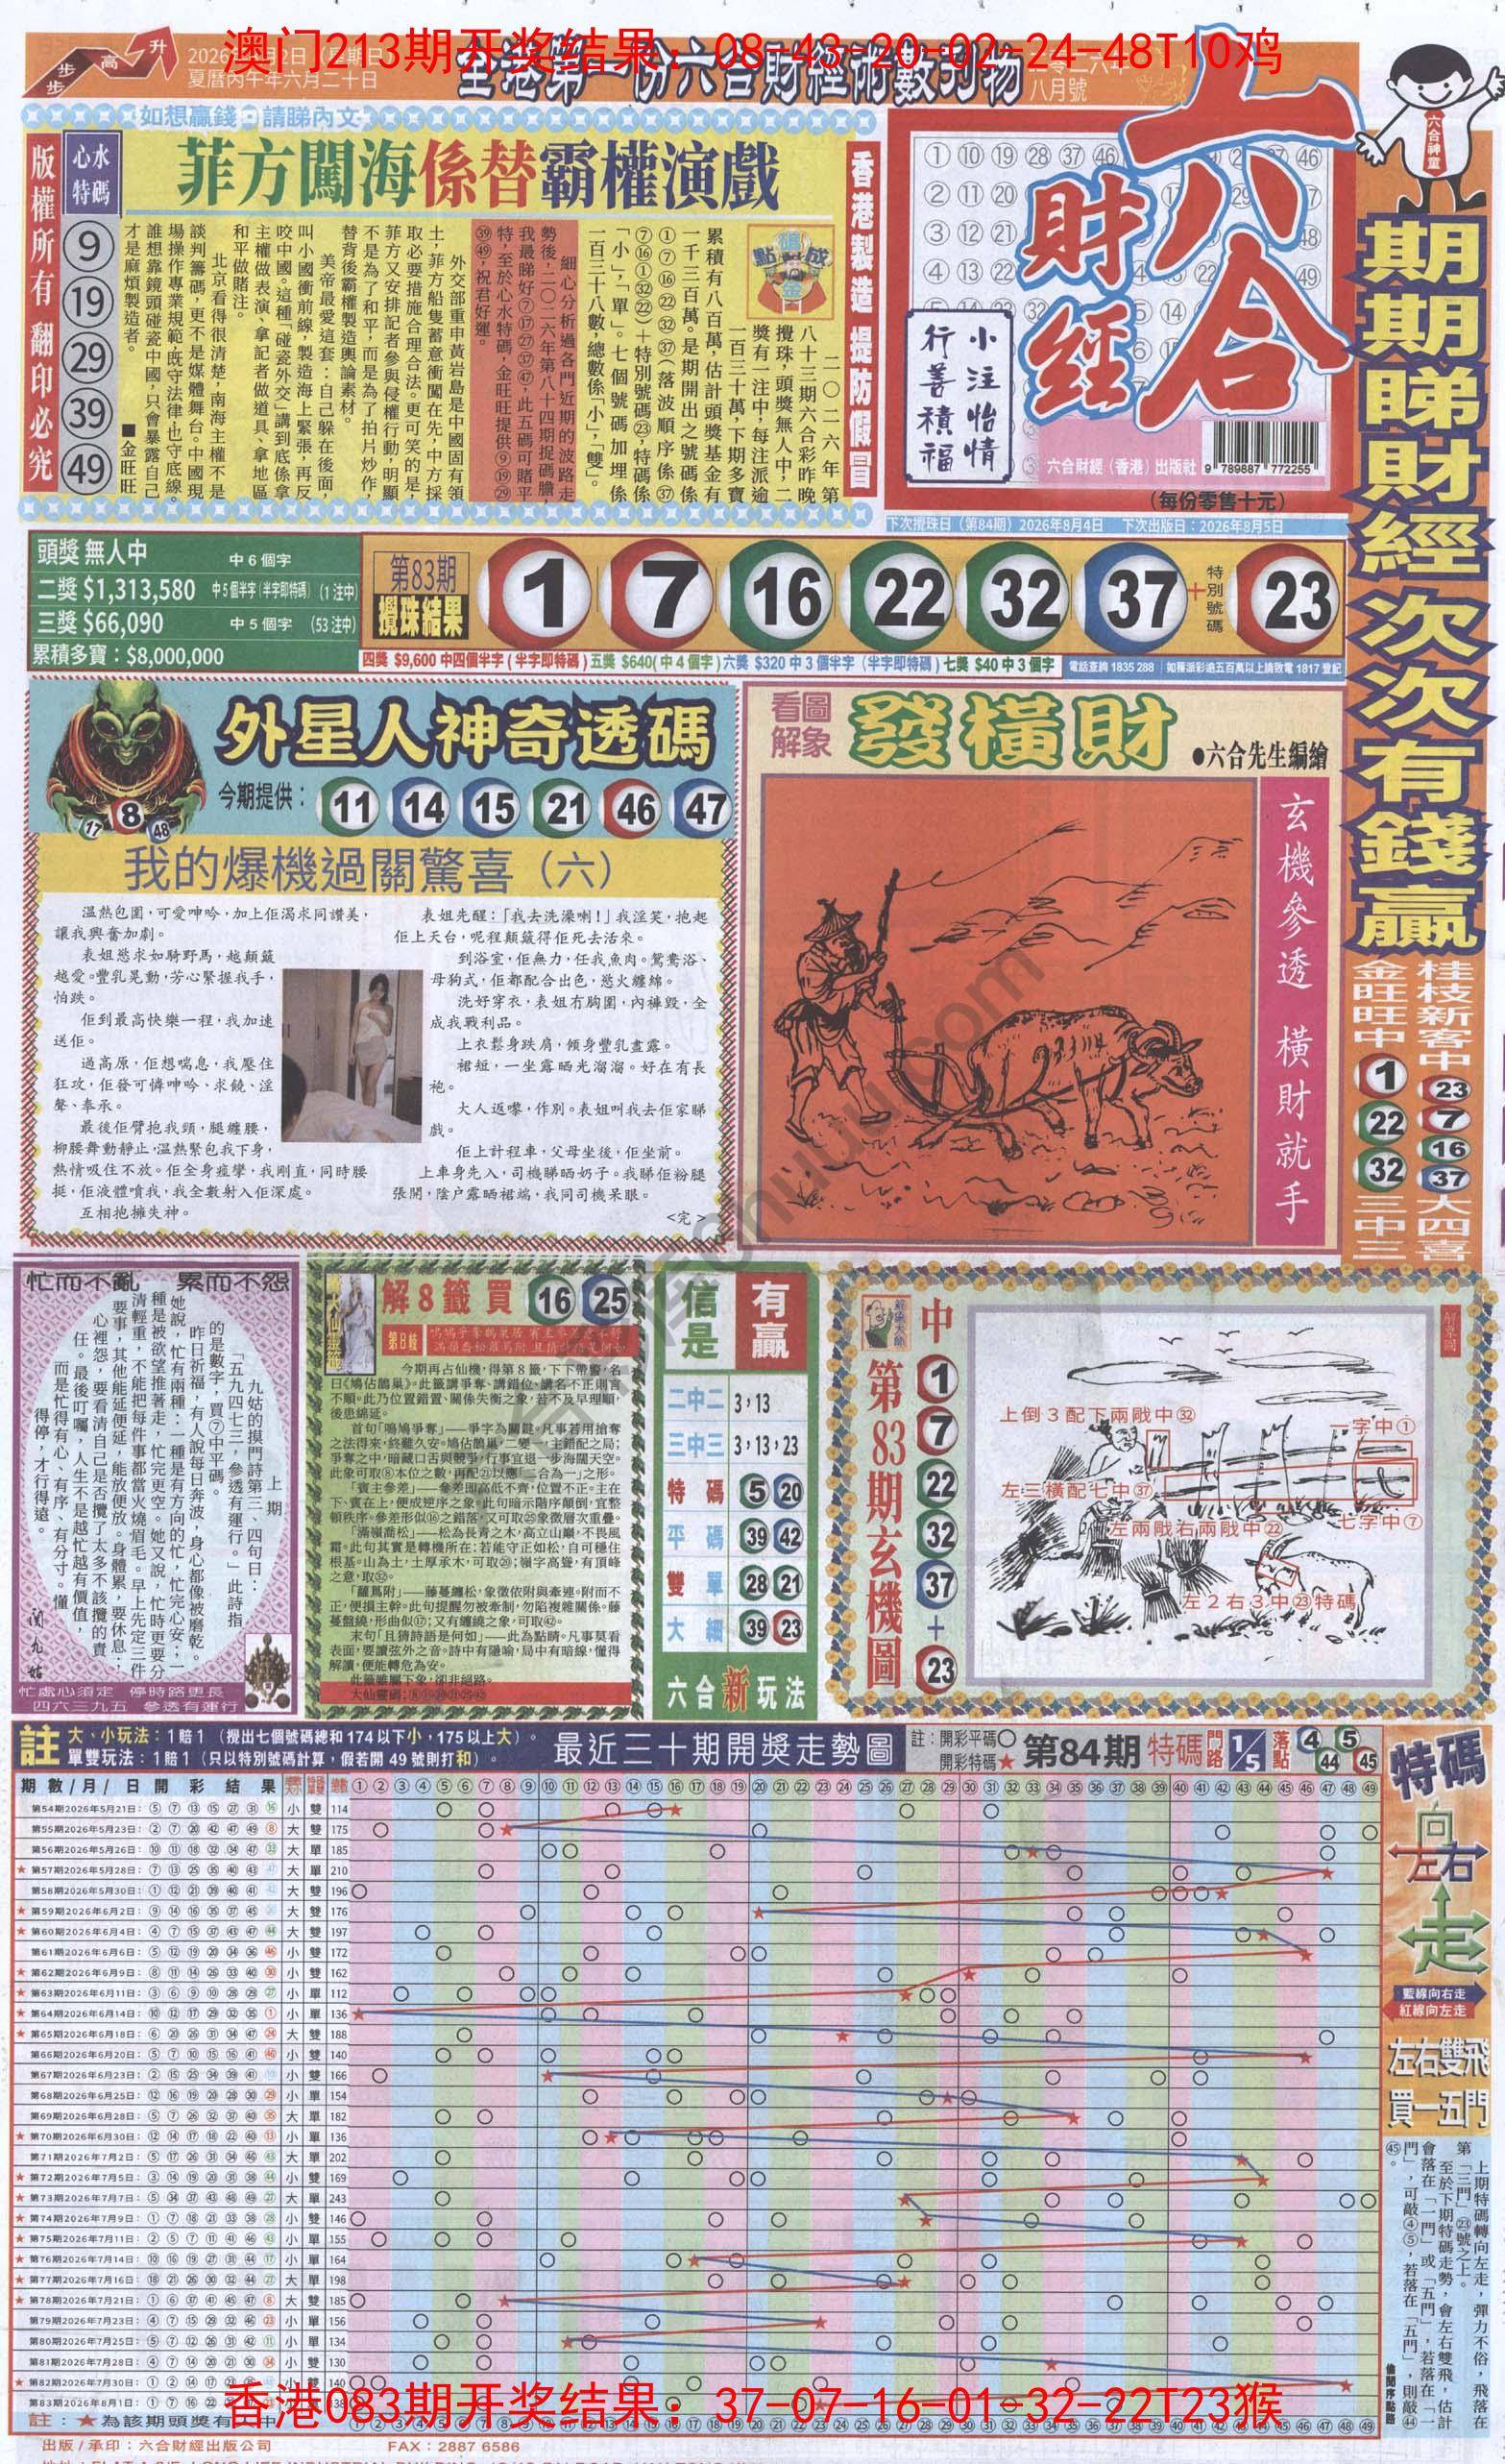 澳门213期开奖结果：08-43-20-02-24-48T10鸡
步步高升
夏曆丙午年六月二十日
全港第一份六合財經術數刊物
八月號
六合財經
六合神童
如想贏錢 請睇內文
版權所有 翻印必究
心水特碼
9
19
29
39
49
菲方闖海係替霸權演戲
香港製造 提防假冒
點碼成金
二〇二六年第
八十三期六合彩昨晚
攪珠，頭獎無人中，二
獎有一注中，每注派逾
一百三十萬，下期多寶
累積有八百萬，估計頭獎基金有
一千三百萬。是期開出之號碼係
①⑦⑯㉒㉜㊲，落波順序係㊲
⑦⑯①㉜㉒＋特別號碼㉓，特碼係
「小」，「單」。七個號碼加埋係
一百三十八數，總數係「小」，「雙」。
細心分析過各門近期的波路走
勢後，二〇二六年第八十四期捉碼膽，
我最睇好⑦⑰㉗㊲㊼，此五碼可賭平
特，至於心水特碼，金旺旺提供⑨⑲㉙
㊴㊾，祝君好運。
外交部重申黃岩島是中國固有領
土，菲方船隻蓄意衝闖在先，中方採
取必要措施合理合法。更可笑的是，
菲方又安排記者參與侵權行動，明顯
不是為了和平，而是為了拍片炒作，
替背後霸權製造輿論素材。
美帝最愛這套：自己躲在後面，
叫小國衝前線，製造海上緊張，再反
咬中國。這種「碰瓷外交」講到底係拿
主權做表演、拿記者做道具、拿地區
和平做賭注。
北京看得很清楚，南海主權不是
談判籌碼，更不是媒體舞台。中國現
場操作專業規範，既守法律也守底線。
誰想靠鏡頭碰瓷中國，只會暴露自己
才是麻煩製造者。
■金旺旺
小注怡情
行善積福
六合財經（香港）出版社
9 789887 772255
（每份零售十元）
下次攪珠日（第84期）2026年8月4日 下次出版日：2026年8月5日
期期睇財經次次有錢贏
頭獎 無人中 中6個字
二獎 $1,313,580 中5個半字(半字即特碼) (1注中)
三獎 $66,090 中5個字 (53注中)
累積多寶：$8,000,000
第83期
攪珠結果
1 7 16 22 32 37 + 特別號碼 23
四獎 $9,600 中四個半字(半字即特碼) 五獎 $640(中4個字) 六獎 $320 中3個半字（半字即特碼) 七獎 $40 中3個字
電話查詢 1835 288 如獲派彩逾五百萬以上請致電 1817 登記
外星人神奇透碼
今期提供：11 14 15 21 46 47
17 8 48
我的爆機過關驚喜（六）
溫熱包圍，可愛呻吟，加上佢渴求同讚美，
讓我興奮加劇。
表姐慾求如騎野馬，越顛簸
越愛。豐乳晃動，芳心緊握我手，
怕跌。
佢到最高快樂一程，我加速
送佢。
過高原，佢想喘息，我壓住
狂攻，佢發可憐呻吟、求饒、淫
聲、奉承。
最後佢臂抱我頸，腿纏腰，
柳腰舞動靜止，溫熱緊包我下身，
熱情吸住不放。佢全身痙攣，我剛直，同時腰
挺，佢液體噴我，我全數射入佢深處。
互相抱擁失神。
表姐先醒：「我去洗澡喇！」我淫笑，抱起
佢上天台，呢程顛簸得佢死去活來。
到浴室，佢無力，任我魚肉。鴛鴦浴、
母狗式，佢都配合出色，慾火纏綿。
洗好穿衣，表姐冇胸圍，內褲毀，全
成我戰利品。
上衣鬆身跌肩，傾身豐乳盡露。
裙短，一坐露晒光溜溜。好在有長
袍。
大人返嚟，作別。表姐叫我去佢家睇
戲。
佢上計程車，父母坐後，佢坐前。
上車身先入，司機睇晒奶子。我睇佢粉腿
張開，陰戶露晒裙端，我同司機呆眼。
<完>
看圖解象
發橫財
●六合先生編繪
玄機參透 橫財就手
桂枝新客中 23 7 16 37 大四喜
金旺旺中 1 22 32 三中三
忙而不亂 累而不怨
上期
九姑的摸門詩第三、四句曰：
「五九四七三，參透有運行。」此詩指
的是數字，買⑦中平碼。
昨日祈福，有人說每日奔波，身心都像被磨乾。
她說，忙有兩種：一種是有方向的忙，忙完心安；一
種是被欲望推著走，忙完更空。她又說，忙時更要分
清輕重，不能把每件事都當火燒眉毛。早上先定三件
要事，其他能延便延，能放便放。身體累，要休息；
心裡怨，要看清自己是否攬了太多不該攬的責
任。最後叮囑，人生不是越忙越有價值，
而是忙得有心、有序、有分寸。懂
得停，才行得遠。
忙處心須定 停時路更長
四六三九五 參透有運行
解8籤買 16 25
第8枝
今期再占仙機，得第8籤，下下帶警，名
曰《鳩佔鵲巢》。此籤講爭奪、講錯位、講名不正則言
不順。此乃位置錯置、關係失衡之象，若不及早理順，
後患綿延。
首句「鳴鳩爭奪」——爭字為關鍵。凡事若用搶奪
之法得來，終難久安。鳩佔鵲巢，二變一，主錯配之局；
爭奪之中，暗藏口舌與競爭，行事宜退一步海闊天空。
「賓主參差」——參差即高低不齊，位置不正。主在
下、賓在上，便成逆序之象。此句暗示階序顛倒，宜整
「滿嶺喬松」——松為長青之木，高立山巔，不畏風
霜。此句其實是轉機所在：若能守正如松，自可穩住
「蘿蔦附」——藤蔓纏松，象徵依附與牽連。附而不
正，便損主幹。此句提醒勿被牽制，勿陷複雜關係。藤
末句「且猜詩語是何如」——此為點睛。凡事莫看
表面，要讀弦外之音。詩中有隱喻，局中有暗線，懂得
解讀，便能轉危為安。
此籤雖屬下象，卻非絕路。
信是有贏
二中二 3，13
三中三 3，13，23
特碼 5 20
平碼 39 42
雙單 28 21
大細 39 23
六合新玩法
解畫圖
中第83期玄機圖
1 7 22 32 37 + 23
上倒3配下兩戙中㉜
一字中①
左三橫配七中㊲
七字中⑦
左兩戙右兩戙中㉒
左2右3中㉓特碼
註 大、小玩法：1賠1（攪出七個號碼總和174以下小，175以上大）。
單雙玩法：1賠1（只以特別號碼計算，假若開49號則打和）。
最近三十期開獎走勢圖
註：開彩平碼○
開彩特碼★
第84期特碼 門路 1/5 落點 4 5 44 45
期數/月/日 開彩結果
第54期2026年5月21日：⑤⑦⑬⑮㉗㉛⑯ 小 雙 114
第55期2026年5月23日：②⑦⑳㊷㊼㊾⑧ 大 雙 175
第56期2026年5月26日：⑩⑪⑱㉜㉞㊼㉝ 大 單 185
★第57期2026年5月28日：⑦⑬㉕㉟㊵㊸㊼ 大 單 210
第58期2026年5月30日：①⑫㉑㊴㊵㊶㊷ 大 雙 196
★第59期2026年6月2日：⑨⑭⑯㉟㊲㊺⑳ 大 雙 176
★第60期2026年6月4日：④⑦⑮㊲㊸㊼㊹ 大 雙 197
第61期2026年6月6日：⑤⑫⑲⑳㉞㊱㊻ 小 雙 172
★第62期2026年6月9日：⑧⑪⑭㉖㉝㊵㉚ 小 雙 162
★第63期2026年6月11日：③⑥⑨⑩㉘㉙㉗ 小 單 112
★第64期2026年6月14日：⑩⑫⑰㉙㉜㉟① 小 單 136
★第65期2026年6月18日：⑥⑳㉖㉛㉞㊼㉔ 大 雙 188
第66期2026年6月20日：⑤⑦⑩⑮⑯㊶㊻ 小 雙 140
★第67期2026年6月23日：②⑮㉕㉞㊴㊶⑩ 小 雙 166
第68期2026年6月25日：⑫⑯⑲⑳㉘㉚㉙ 小 單 154
第69期2026年6月28日：⑤⑦㉖㉜㊲㊵㉟ 大 單 182
★第70期2026年6月30日：⑫⑭⑰⑱㉒㊵⑬ 小 單 136
第71期2026年7月2日：⑤⑰㉖㉛㉞㊻㊸ 大 單 202
★第72期2026年7月5日：③⑭⑲⑳㉛㊳㊹ 小 雙 169
★第73期2026年7月7日：⑤㉞㊲㊸㊽㊾㉗ 大 單 243
★第74期2026年7月9日：①⑦⑱㉑㉝㊳㉘ 小 雙 146
★第75期2026年7月11日：②⑤⑦⑪㊶㊻㊸ 小 單 155
★第76期2026年7月14日：⑩⑯⑲㉗㉛㊹⑰ 小 單 164
★第77期2026年7月16日：⑱㉑㉖㉚㉜㊹㉗ 大 單 198
★第78期2026年7月21日：①⑥㊲㊶㊺㊼⑧ 大 雙 185
第79期2026年7月23日：④⑦⑮㉙㉜㊻㉓ 小 單 156
★第80期2026年7月25日：⑤⑦⑫㉖㉛㊷⑪ 小 單 134
第81期2026年7月28日：④⑦⑭⑳㉑㉚㉞ 小 雙 130
★第82期2026年7月30日：①②⑭⑰ 140
第83期2026年8月1日：①⑦⑯㉒
香港083期开奖结果：37-07-16-01-32-22T23猴
註：★為該期頭獎有
特碼向左右走
藍線向右走
紅線向左走
左右雙飛
買一五門
上期特碼轉向左走，彈力不俗，飛落在
第「三門」㉓號之上。
至於下期特碼走勢，會左右雙飛，估計
會落在「一門」或「五門」，若落在「一
門」，可敲④⑤，若落在「五門」，則敲㊹
㊺。
出版/承印：六合財經出版公司
FAX：2887 6586